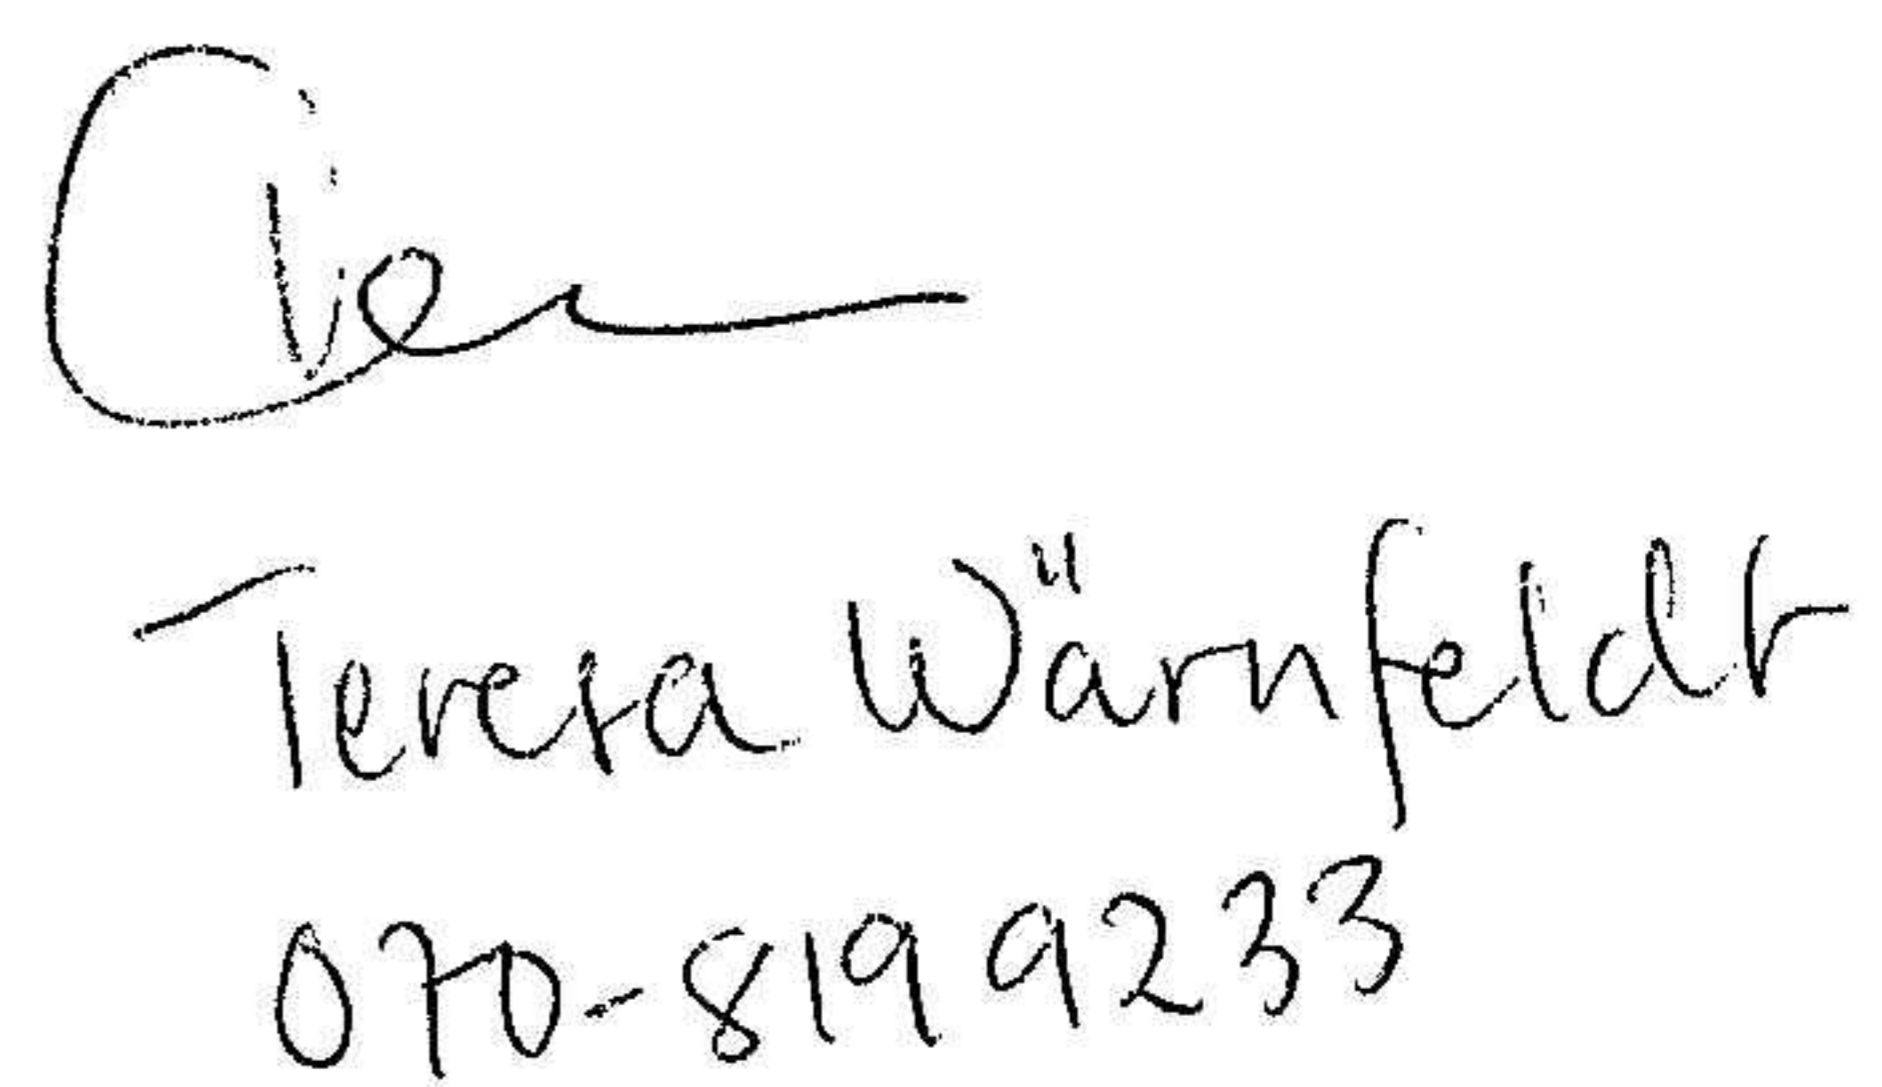 Teresa Wärnfeldt
070-819 9233